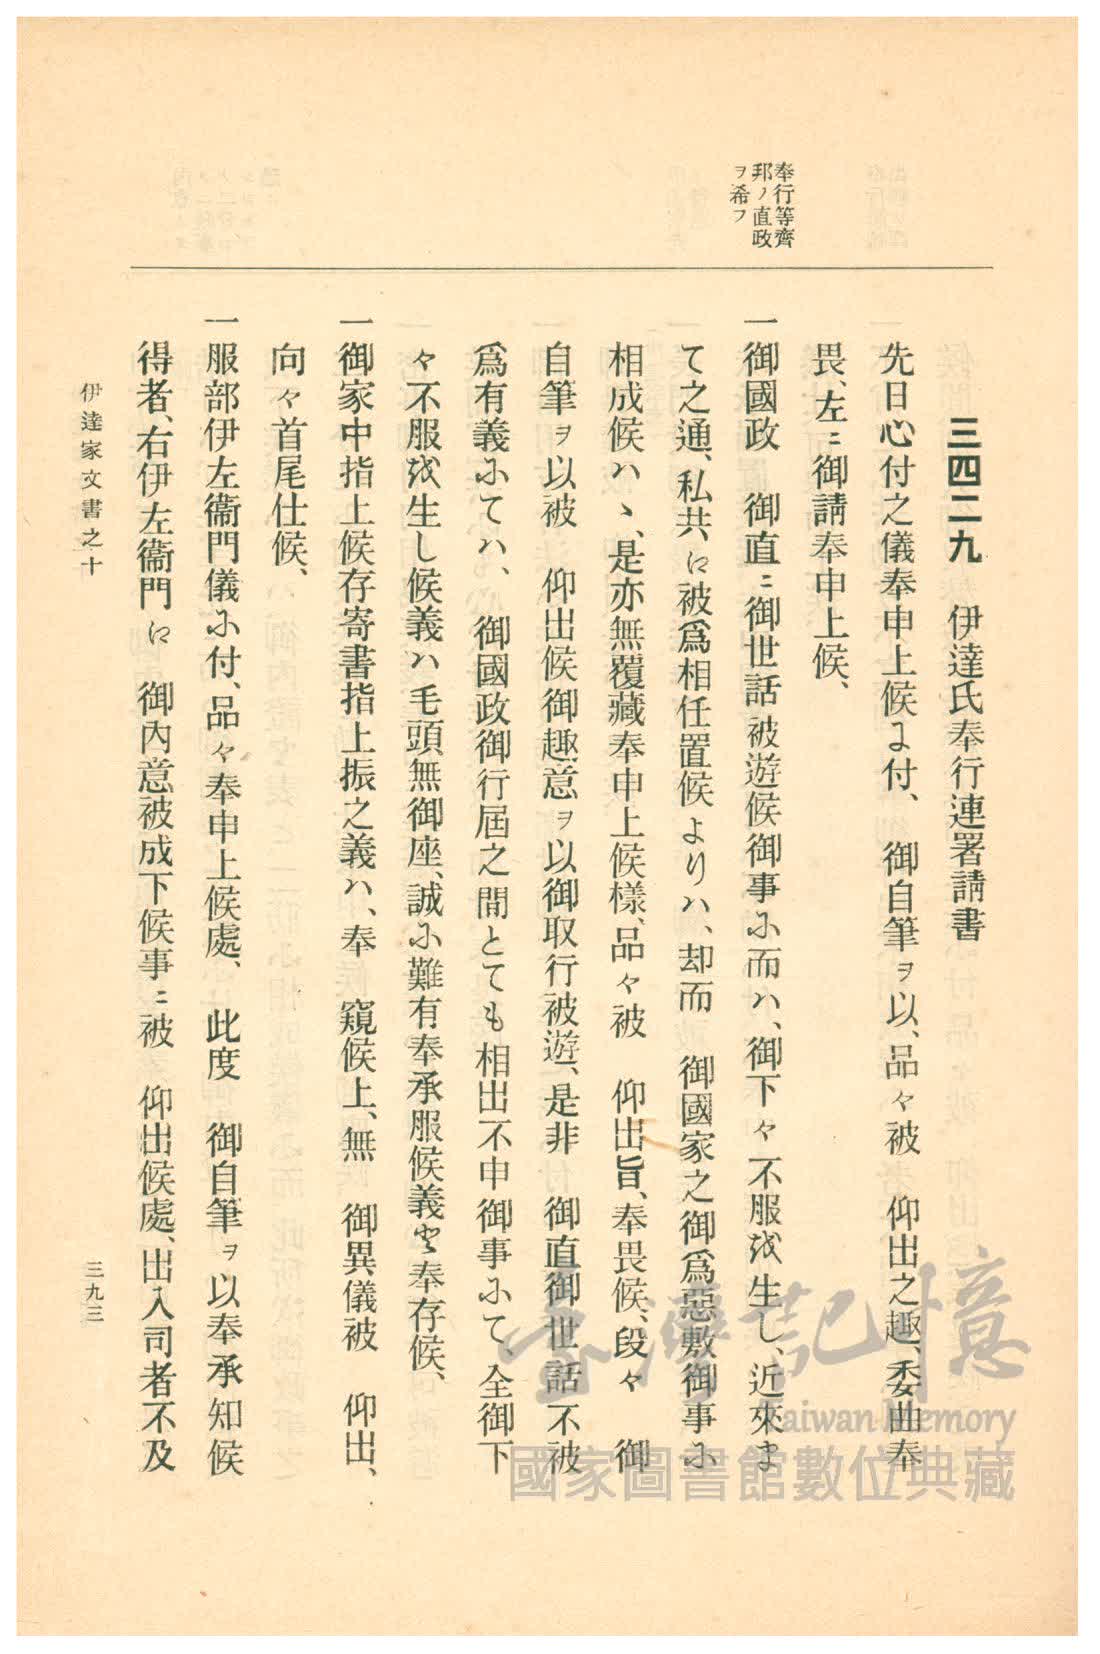 奉行等齊
邦ノ直政
ヲ希フ
三四二九　伊達氏奉行連署請書
先日心付之儀奉申上候ニ付、　御自筆ヲ以、品々被　仰出之趣、委曲奉
畏、左ニ御請奉申上候、
一御國政　御直ニ御世話被遊候御事ニ而ハ、御下々不服を生し、近來ま
て之通、私共に被爲相任置候よりハ、却而　御國家之御爲惡敷御事に
相成候ハヽ、是亦無覆藏奉申上候様、品々被　仰出旨、奉畏候、段々　御
自筆ヲ以被　仰出候御趣意ヲ以御取行被遊、是非　御直御世話不被
爲有義にてハ、　御國政御行屆之間とても相出不申御事にて、全御下
々不服を生し候義ハ毛頭無御座、誠に難有奉承服候義と奉存候、
一御家中指上候存寄書指上振之義ハ、奉　窺候上、無　御異儀被　仰出、
向々首尾仕候、
一服部伊左衞門儀に付、品々奉申上候處、　此度　御自筆ヲ以奉承知候
得者、右伊左衞門に　御內意被成下候事ニ被　仰出候處、出入司者不及
伊達家文書之十
三九三
臺灣記憶
Taiwan Memory
國家圖書館數位典藏